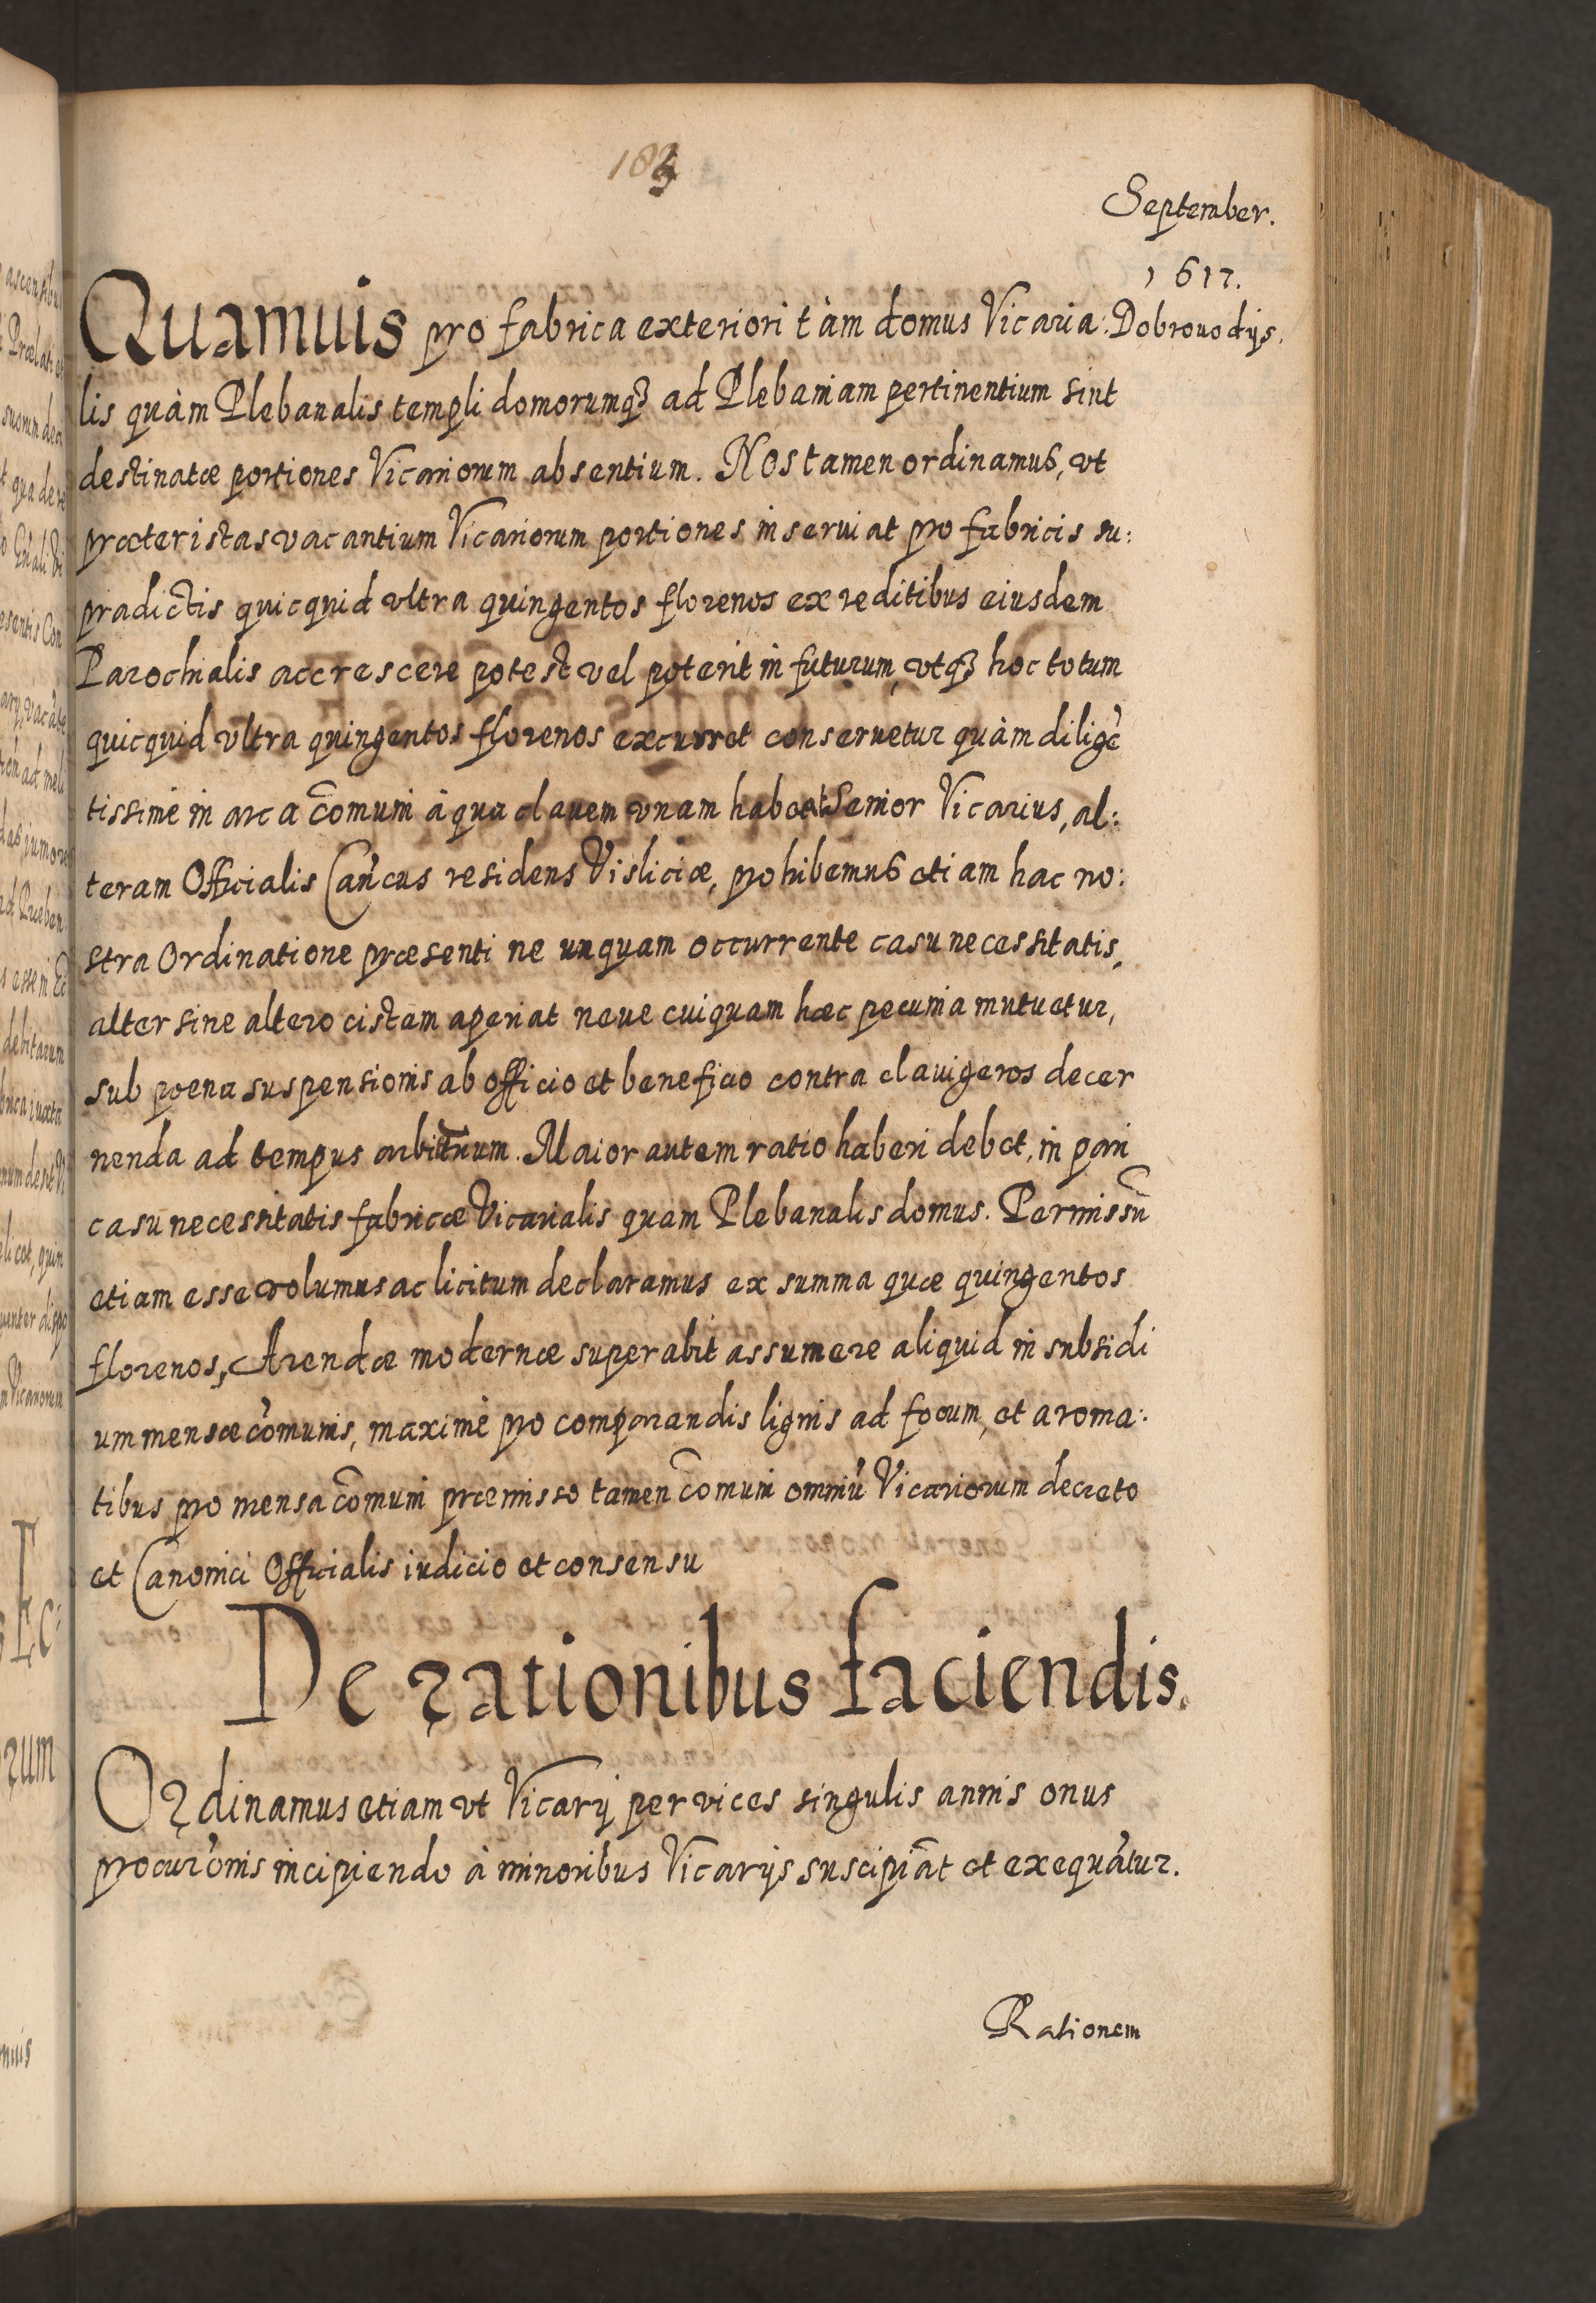 September.
1617.
Quamuis pro fabrica exteriori tàm domus Vicaria: Dobrouodijs.
lis quàm Plebanalis templi domorumq3 ad Plebaniam pertinentium sint
destinatæ portiones Vicariorum absentium. Nos tamen ordinamus, vt
præter istas vacantium Vicariorum portiones inseruiat pro fabricis su:
pradictis quicquid vltra quingentos florenos ex reditibus eiusdem
Parochialis accrescere potest vel poterit in futurum, vtq3 hoc totum
quicquid vltra quingentos florenos excurret conseruetur quàm diligẽ
tissimè in arca cõmuni à qua clauem vnam habeat Senior Vicarius, al:
teram Officialis Cañcus residens Visliciæ, prohibemus etiam hac no:
stra Ordinatione præsenti ne unquam occurrente casu necessitatis,
alter sine altero cistam aperiat neue cuiquam hæc pecunia mutuetur,
sub poena suspensionis ab officio et beneficio contra clauigeros decer
nenda ad tempus arbitrium. Maior autem ratio haberi debet, in pari
casu necessitatis fabricæ Vicarialis quam Plebanalis domus. Permissũ
etiam esse volumus ac licitum declaramus ex summa quæ quingentos
florenos, Arendæ modernæ superabit assumere aliquid in subsidi
um mensæ cõmunis, maximè pro comparandis lignis ad focum, et aroma:
tibus pro mensa cõmuni præmisso tamen cõmuni omniũ Vicariorum decreto
et Canonici Officialis iudicio et consensu
De rationibus faciendis.
Ordinamus etiam vt Vicarij per vices singulis annis onus
procurõnis incipiendo à minoribus Vicarijs suscipiãt et exequãtur.
Rationem